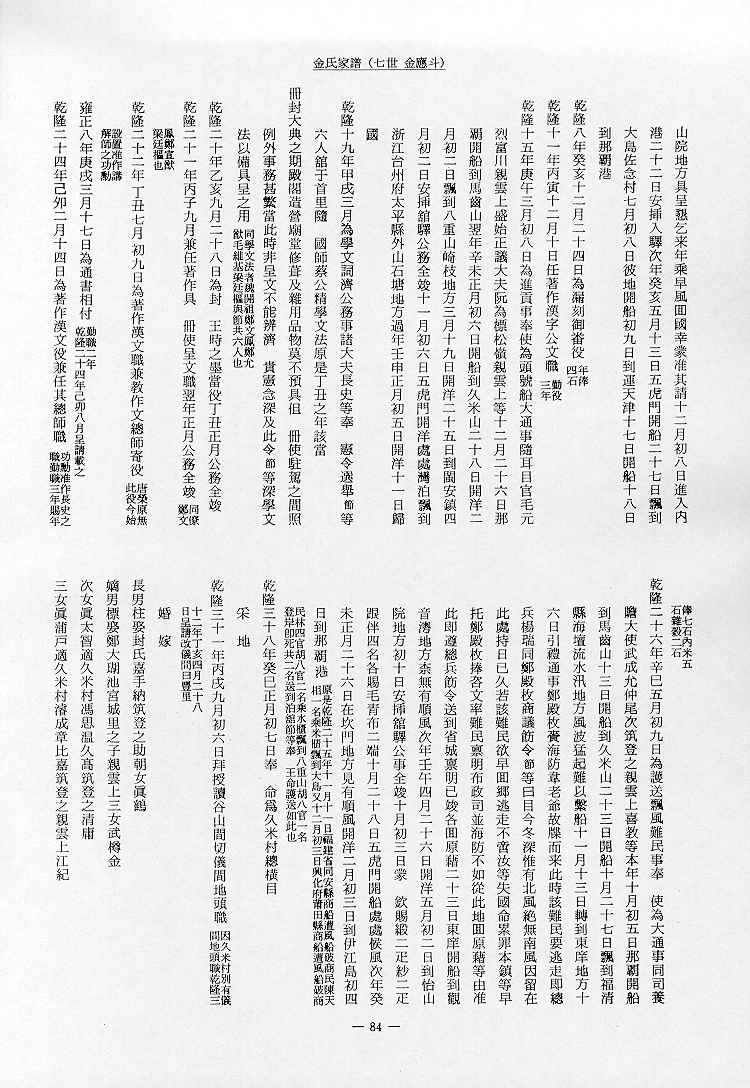 金氏家譜（七世 金應斗）
山院地方具呈懇乞来年乗早風囬國幸業准其請十二月初八日進入内
港二十二日安挿入驛次年癸亥五月十三日五虎門開船二十七日飄到
大島佐念村七月初八日彼地開船初九日到運天津十七日開船十八日
到那覇港
乾隆八年癸亥十二月二十四日為漏刻御番役 年俸四石
乾隆十一年丙寅十二月十日任著作漢字公文職 勤役三年
乾隆十五年庚午三月初八日為進貢事奉使為頭號船大通事隨耳目官毛元
烈富川親雲上盛始正議大夫阮為標松嶺親雲上等十二月二十六日那
覇開船到馬齒山翌年辛未正月初六日開船到久米山二十八日開洋二
月初二日飄到八重山崎枝地方三月十九日開洋二十五日到閩安鎮四
月初二日安挿舘驛公務全竣十一月初六日五虎門開洋處處灣泊飄到
浙江台州府太平縣外山石塘地方過年壬申正月初五日開洋十一日歸
國
乾隆十九年甲戌三月為學文詞濟公務事諸大夫長史等奉　憲令選擧節等
六人舘于首里隨　國師蔡公精學文法原是丁丑之年該當
冊封大典之期殿閣造營廟堂修葺及雜用品物莫不預具但　冊使駐駕之間照
例外事務甚繁當此時非呈文不能辨濟　貴憲念深及此令節等深學文
法以備具呈之用 同學文法者魏開祖鄭文鳳鄭允猷毛維基梁廷樞與節共六人也
乾隆二十年乙亥九月二十八日為封　王時之墨當役丁丑正月公務全竣
乾隆二十一年丙子九月兼任著作具　冊使呈文職翌年正月公務全竣 同僚鄭文
鳳鄭宣猷梁廷樞也
乾隆二十二年丁丑七月初九日為著作漢文職兼教作文總師寄役 唐榮原無此役今始
設置准作講解師之功勳
雍正八年庚戌三月十七日為通書相付 勤職二年乾隆二十四年己卯八月呈請載之
乾隆二十四年己卯二月十四日為著作漢文役兼任其總師職 功勳准作長史之職勤職三年賜年
俸七石内米五石雜穀二石
乾隆二十六年辛巳五月初九日為護送飄風難民事奉　使為大通事同司養
贍大使武成允仲尾次筑登之親雲上喜教等本年十月初五日那覇開船
到馬齒山十三日開船到久米山二十三日開船十月二十七日飄到福清
縣海壇流水汛地方風波猛起難以繫船十一月十三日轉到東庠地方十
六日引禮通事鄭殿枚賷海防韋老爺故牒而来此時該難民要逃走即總
兵楊瑞同鄭殿枚商議飭令節等曰目今冬深惟有北風絶無南風因留在
此處持日已久若該難民欲早囬鄉逃走不啻汝等失國命累罪本鎮等早
托鄭殿枚捧咨文率難民禀明布政司並海防不如從此地囬原藉等由准
此即遵總兵飭令送到省城禀明已竣各囬原藉二十三日東庠開船到觀
音澳地方柰無有順風次年壬午四月二十六日開洋五月初二日到怡山
院地方初十日安挿舘驛公事全竣十月初三日蒙　欽賜緞二疋紗二疋
跟伴四名各賜毛青布二端十月二十八日五虎門開船處處候風次年癸
未正月二十六日在坎門地方見有順風開洋二月初三日到伊江島初四
日到那覇港 原是乾隆二十五年十一月十一日福建省同安縣商船遭風船破商民陳天相一名乘米櫃飄到大島又十二月初三日興化府莆田縣商船遭風船破商
民林四官胡八官二名乘水櫃飄到八重山胡八官一名登岸卽死共二名送到泊舘節等奉　王命護送如此也
乾隆三十八年癸巳正月初七日奉　命爲久米村總横目
采地
乾隆三十一年丙戌九月初六日拜授讀谷山間切儀間地頭職 因久米村別有儀間地頭職乾隆三
十二年丁亥四月二十八日呈請改儀間曰豐里
婚嫁
長男柱娶封氏嘉手納筑登之助朝女眞鶴
嫡男標娶鄭大湖池宮城里之子親雲上三女武樽金
次女眞太智適久米村馮思温久髙筑登之清庸
三女眞蒲戸適久米村濬成章比嘉筑登之親雲上江紀
— 84 —